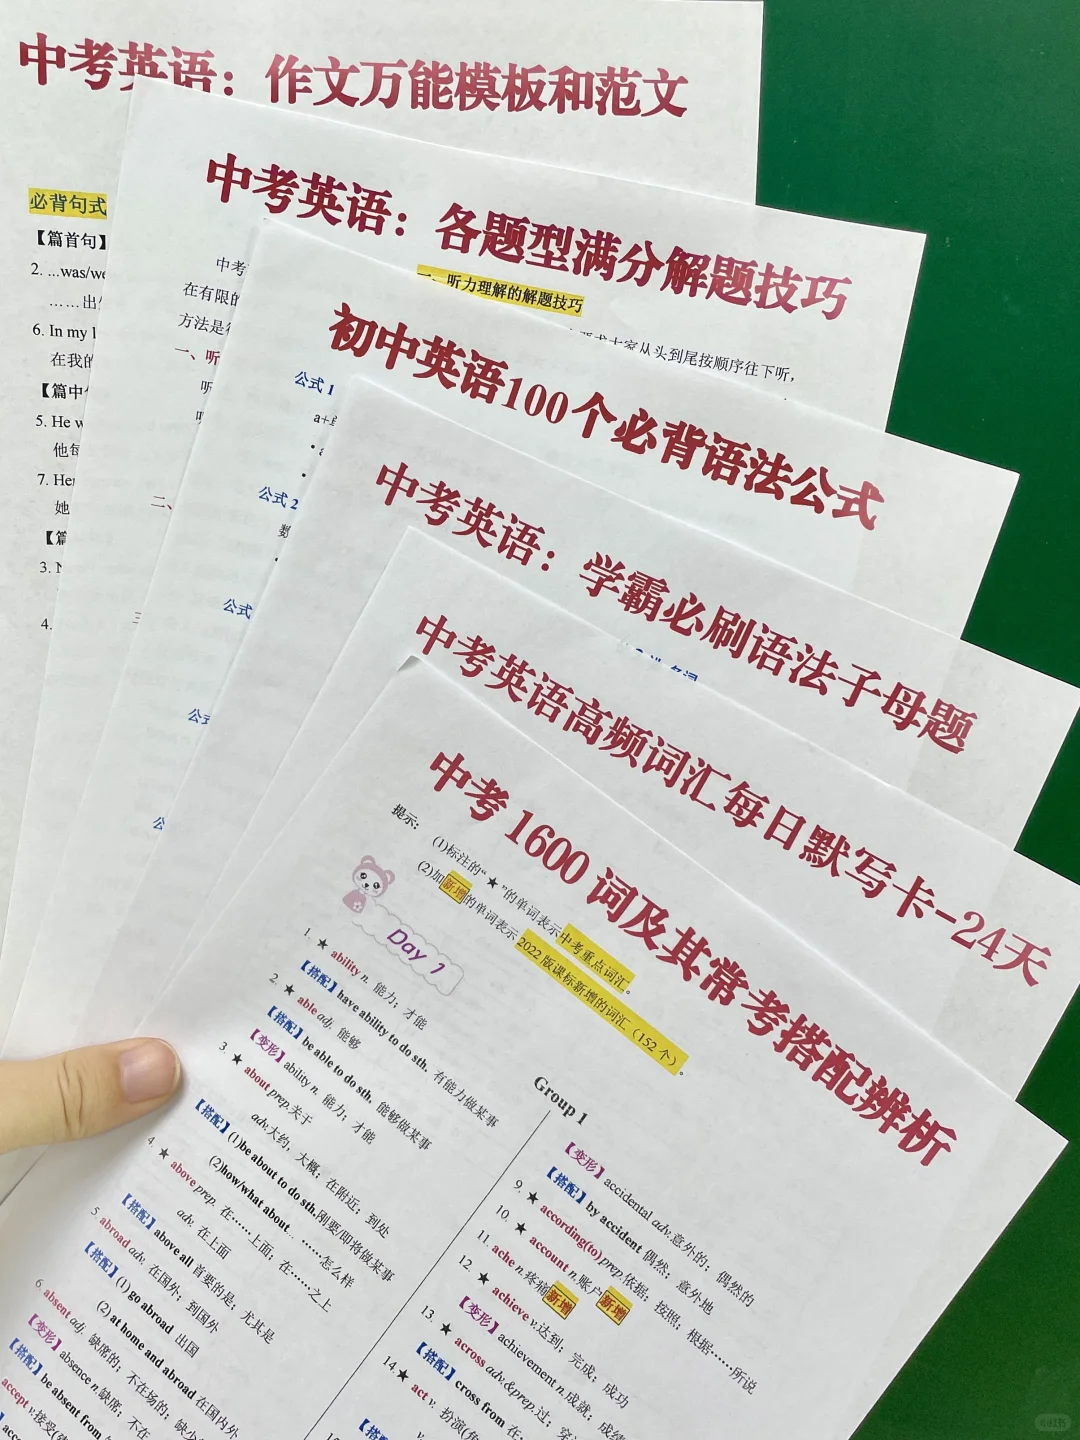 中考英语：作文万能模板和范文
必背句式
【篇首句】
2. ...was/we
……出
6. In my l
在我的
【篇中
5. He w
他每
7. Her
她
【篇
3. N
4.
中考英语：各题型满分解题技巧
一、听力理解的解题技巧
中考
要求大家从头到尾按顺序往下听，
在有限的
方法是
一、听
听
二、
三
初中英语100个必背语法公式
公式 1
a+
• a
•
公式 2
数
•
公式
公式
公
中考英语：学霸必刷语法子母题
中考英语高频词汇每日默写卡-24天
中考 1600 词及其常考搭配辨析
提示：
(1)标注的“★”的单词表示中考重点词汇。
(2)加新增的单词表示 2022 版课标新增的词汇（152 个）。
Day 1
Group 1
1. ★ ability n. 能力；才能
【搭配】have ability to do sth. 有能力做某事
2. ★ able adj. 能够
【搭配】be able to do sth. 能够做某事
【变形】ability n. 能力；才能
3. ★ about prep.关于
adv.大约，大概；在附近；到处
【搭配】(1)be about to do sth.刚要/即将做某事
(2)how/what about... ……怎么样
4. ★ above prep. 在……上面；在……之上
adv. 在上面
【搭配】above all 首要的是；尤其是
5. abroad adv. 在国外；到国外
【搭配】(1) go abroad 出国
(2) at home and abroad 在国内外
6. absent adj. 缺席的；不在场的；缺少
【变形】absence n.缺席；不在
【搭配】be absent from
accept v.接受
【变形】accidental adv.意外的；偶然的
【搭配】by accident 偶然；意外地
9. ★ according(to) prep.依据；按照；根据……所说
10. ★ account n.账户新增
11. ache n.疼痛新增
12. ★ achieve v.达到；完成；成功
【变形】achievement n.成就；成绩
13. ★ across adv.&prep.过；穿
【搭配】cross from 在
14. ★ act v. 扮演(角
v.
【搭
小红书